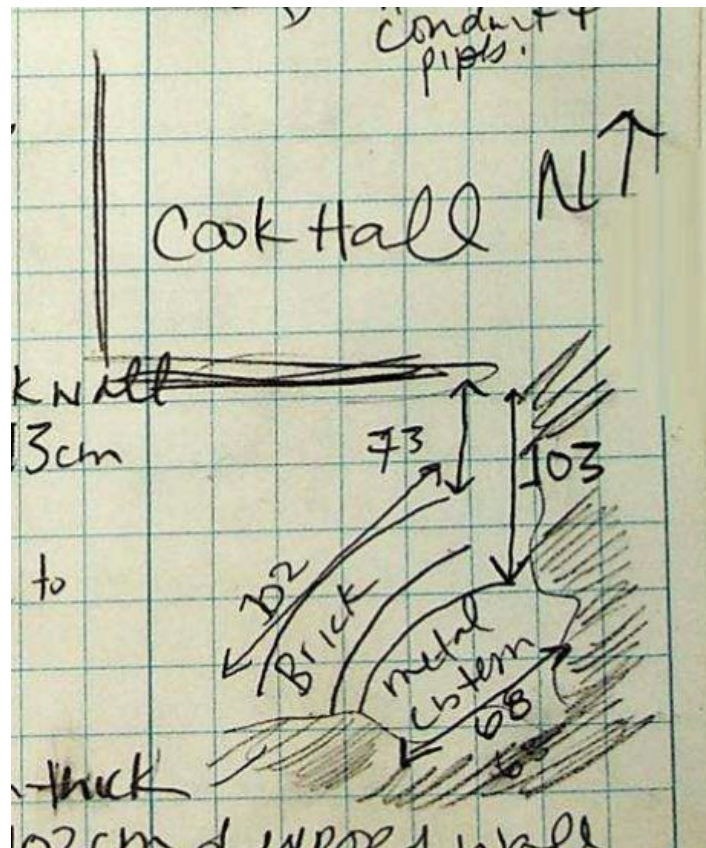 conduit +
pipes.
N
Cook Hall
k wall
13cm
73
103
to
Brick
metal
cistern
68
-thick
102cm of exposed wall